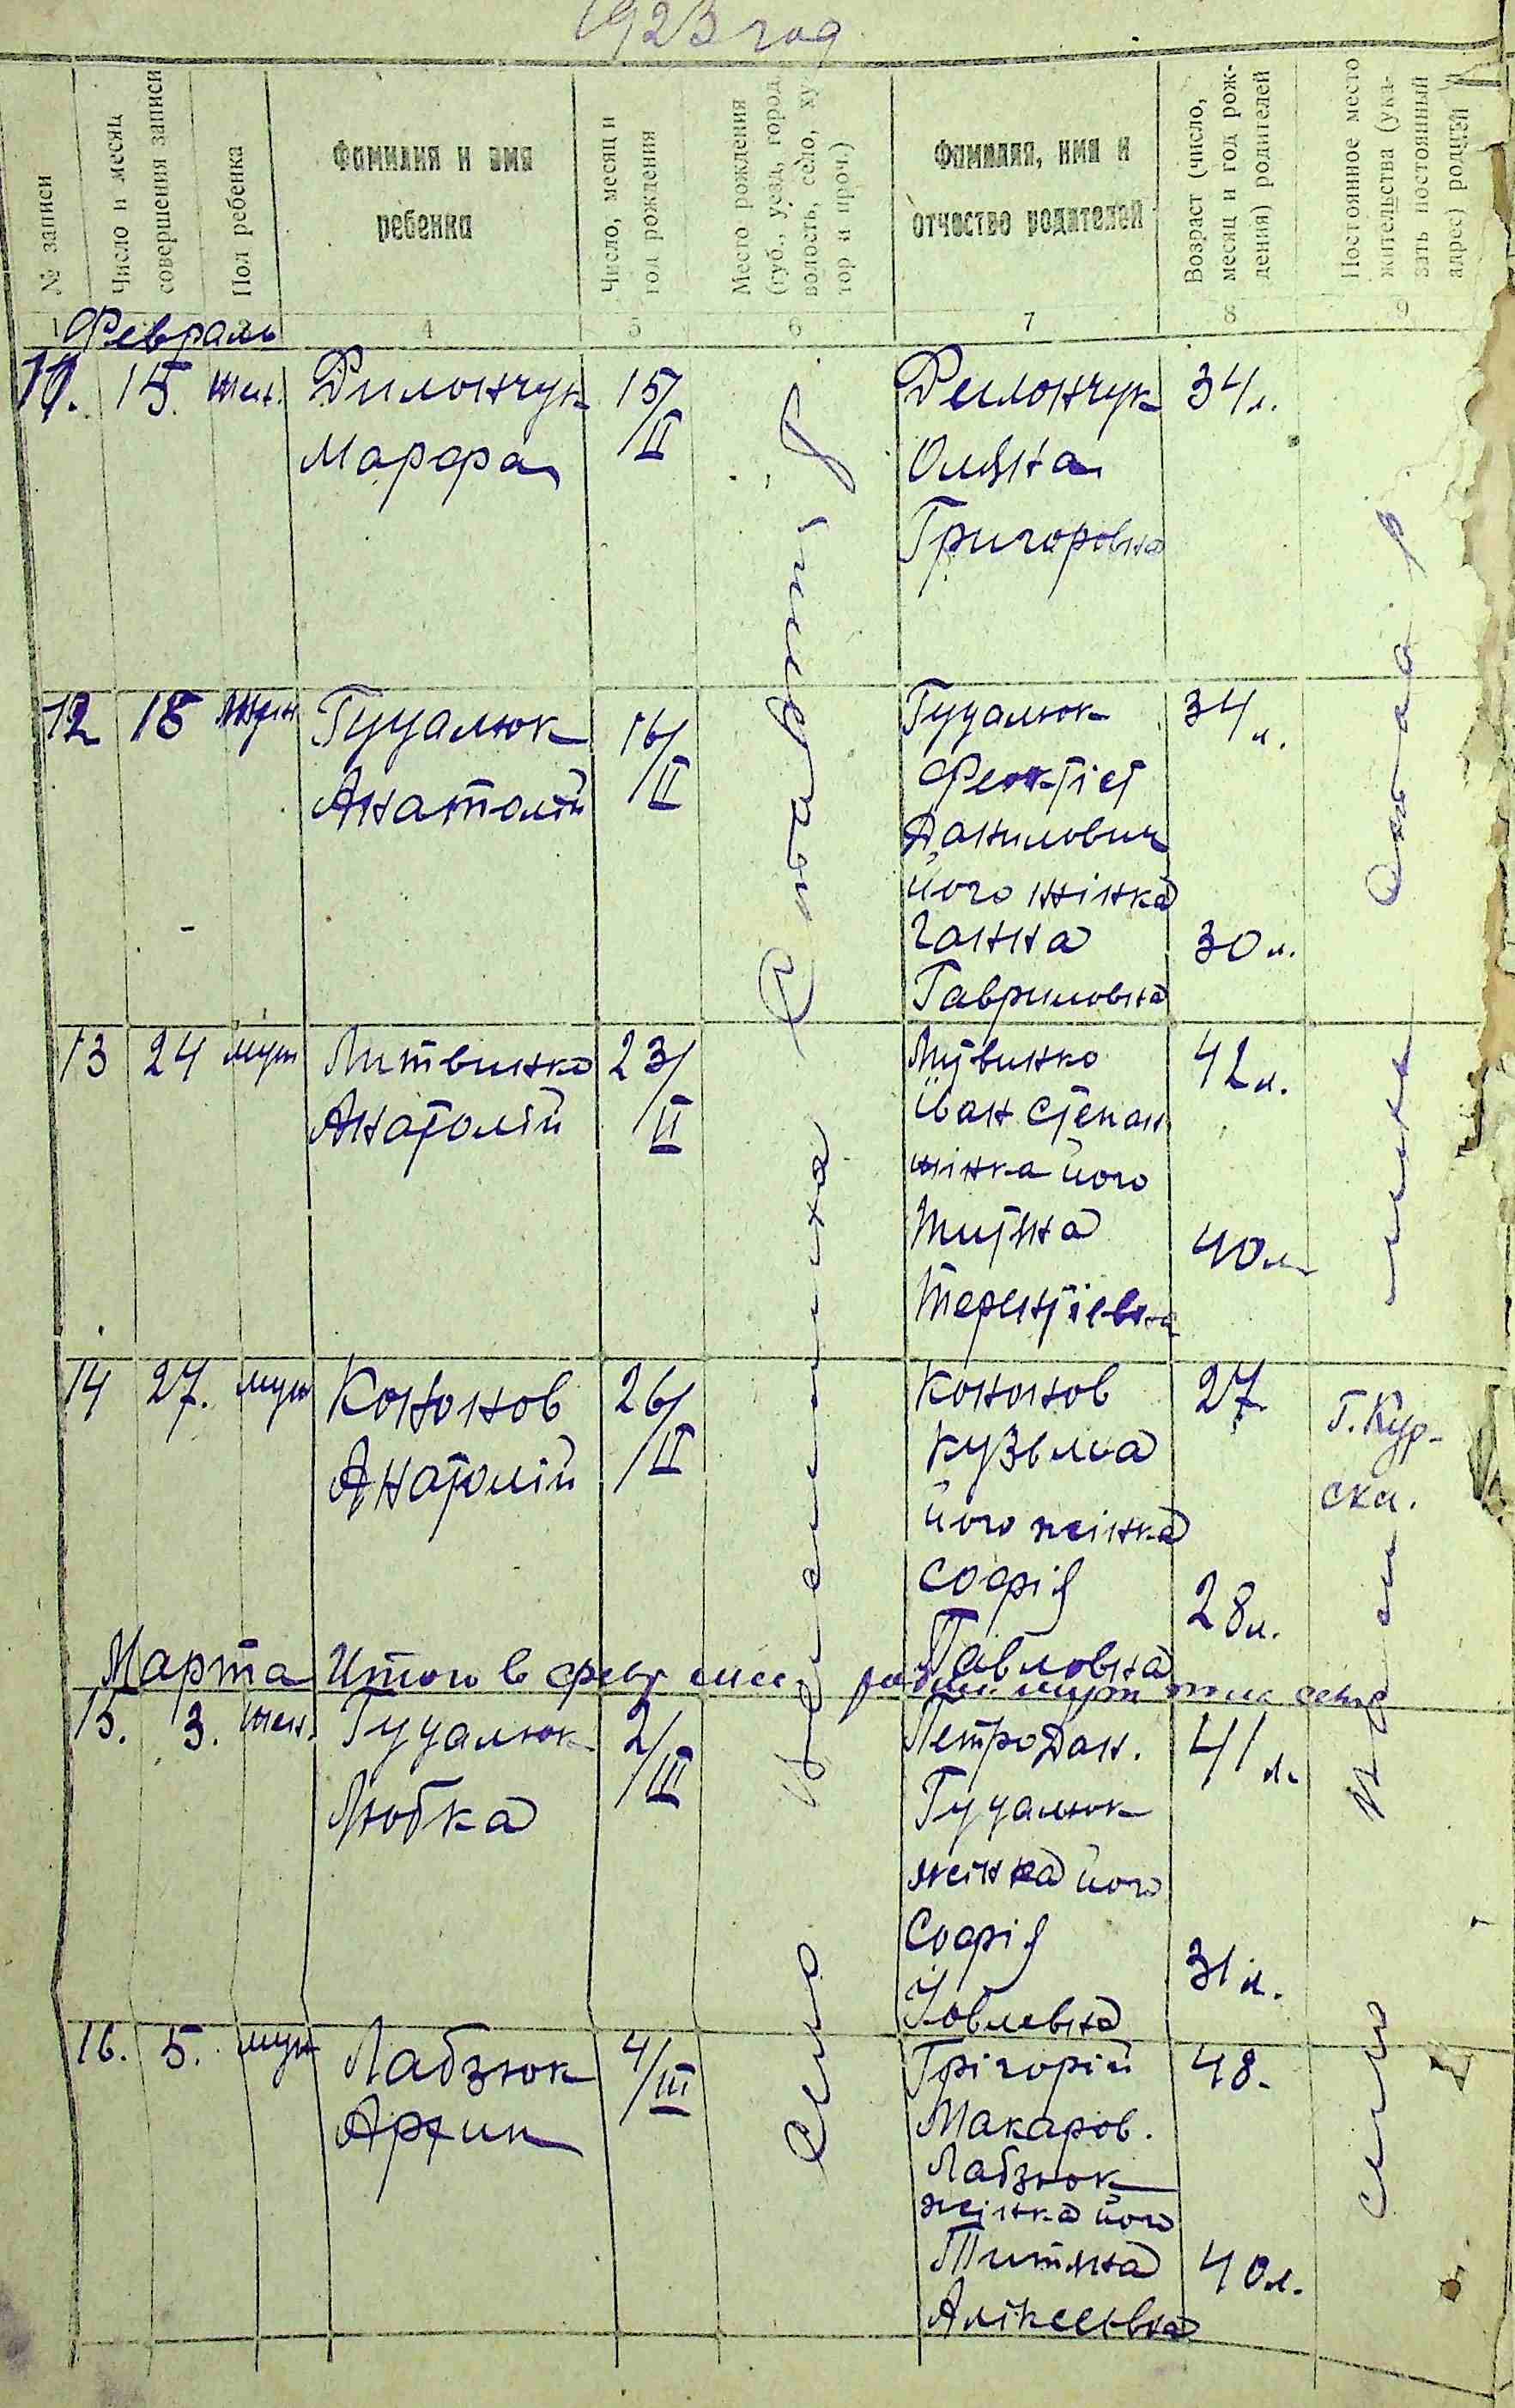 1923 год
№ записи
Число и месяц
совершения записи
Пол ребенка
Фамилия и имя
ребенка
Число, месяц и
год рождения
Место рождения
(губ., уезд, город,
волость, село, ху-
тор и проч.)
Фамилия, имя и
отчество родителей
Возраст (число,
месяц и год рож-
дения) родителей
Постоянное место
жительства (ука-
зать постоянный
адрес) родцей
1 4 5 6 7 8 9
Февраль
15. жен.
Марфа
15/II
Оляна
Григоровна
34 л.
12 18 муж
Гуцалюк
Анатолій
16/II
Гуцалюк
Феоктіст
Данилович
його жінка
Ганна
Гавриловна
34 л.
30 л.
13 24 муж
Литвинко
Анатолій
23/II
Литвинко
Іван Степан
жінка його
Титяна
Терентіевна
42 л.
40 л.
14 27. муж
Кононов
Анатолій
26/II
Кононов
Кузьма
його жінка
Софія
Павловна
27
28 л.
Г. Кур-
ска.
Марта
Итого в февр мес.
15. 3. жен.
Гуцалюк
Любка
2/III
Петро Дан.
Гуцалюк
жінка його
Софія
41 л.
31 л.
16. 5. муж
Лабзюк
4/III
Грігорій
Макаров.
Лабзюк
жінка його
Титяна
Аліксеевна
48.
40 л.
Село
Село